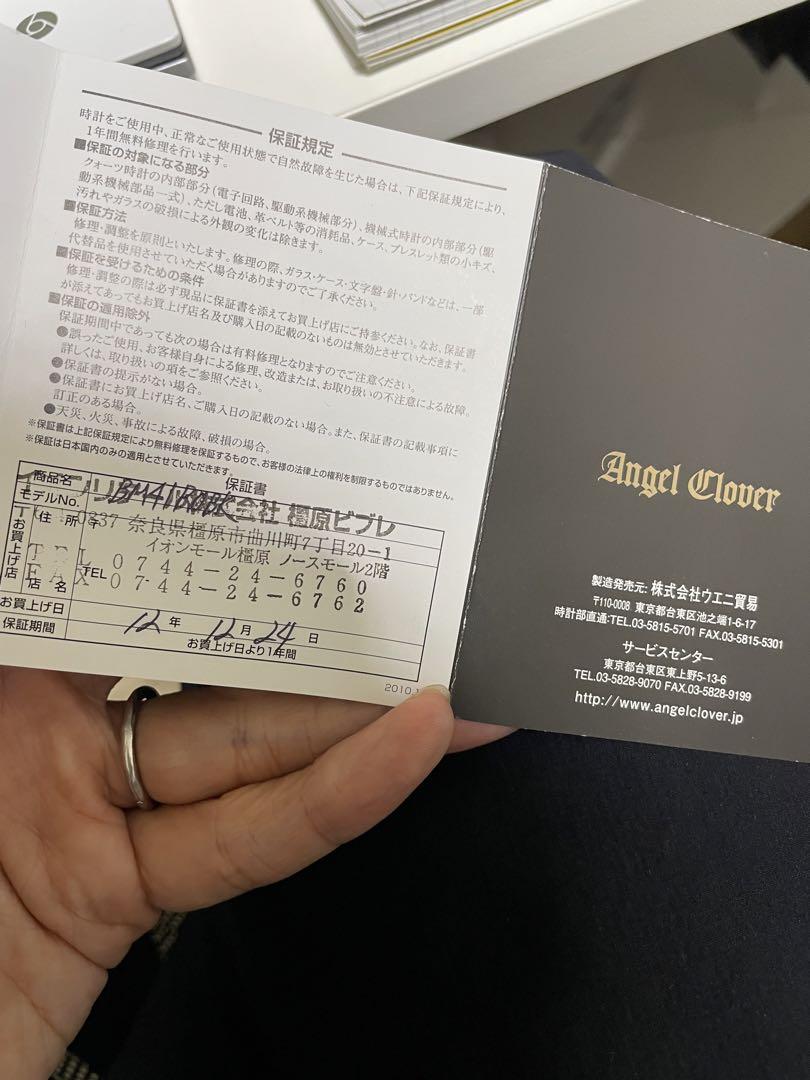 保証規定
時計をご使用中、正常なご使用状態で自然故障を生じた場合は、下記保証規定により、
1年間無料修理を行います。
■保証の対象になる部分
クォーツ時計の内部部分(電子回路、駆動系機械部分)、機械式時計の内部部分(駆
動系機械部品一式)、ただし電池、革ベルト等の消耗品、ケース、ブレスレット類の小キズ、
汚れやガラスの破損による外観の変化は除きます。
■保証方法
修理・調整を原則といたします。修理の際、ガラス・ケース・文字盤・針・バンドなどは、一部
代替品を使用させていただく場合がありますのでご了承ください。
■保証を受けるための条件
修理・調整の際は必ず現品に保証書を添えてお買上げ店にご持参ください。なお、保証書
が添えてあってもお買上げ店名及び購入日の記載のないものは無効とさせていただきます。
■保証の適用除外
保証期間中であっても次の場合は有料修理となりますのでご注意ください。
●誤ったご使用、お客様自身による修理、改造または、お取り扱いの不注意による故障。
詳しくは、取り扱いの項をご参照ください。
●保証書の提示がない場合。
●保証書にお買上げ店名、ご購入日の記載のない場合。また、保証書の記載事項に
訂正のある場合。
●天災、火災、事故による故障、破損の場合。
※保証書は上記保証規定により無料修理を保証するもので、お客様の法律上の権利を制限するものではありません。
※保証は日本国内のみの適用とさせていただきます。
保証書
商品名
モデルNo.
会社 橿原ビブレ
お買上げ店
住所
奈良県橿原市曲川町7丁目20-1
イオンモール橿原 ノースモール2階
TEL 0744-24-6760
FAX 0744-24-6762
店名
TEL
お買上げ日
12年 12月 24日
保証期間
お買上げ日より1年間
Angel Clover
製造発売元: 株式会社ウエニ貿易
〒110-0008 東京都台東区池之端1-6-17
時計部直通:TEL.03-5815-5701 FAX.03-5815-5301
サービスセンター
東京都台東区東上野5-13-6
TEL.03-5828-9070 FAX.03-5828-9199
http://www.angelclover.jp